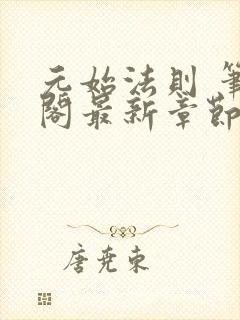 元始法則 筆
閣最新章節
唐尧東